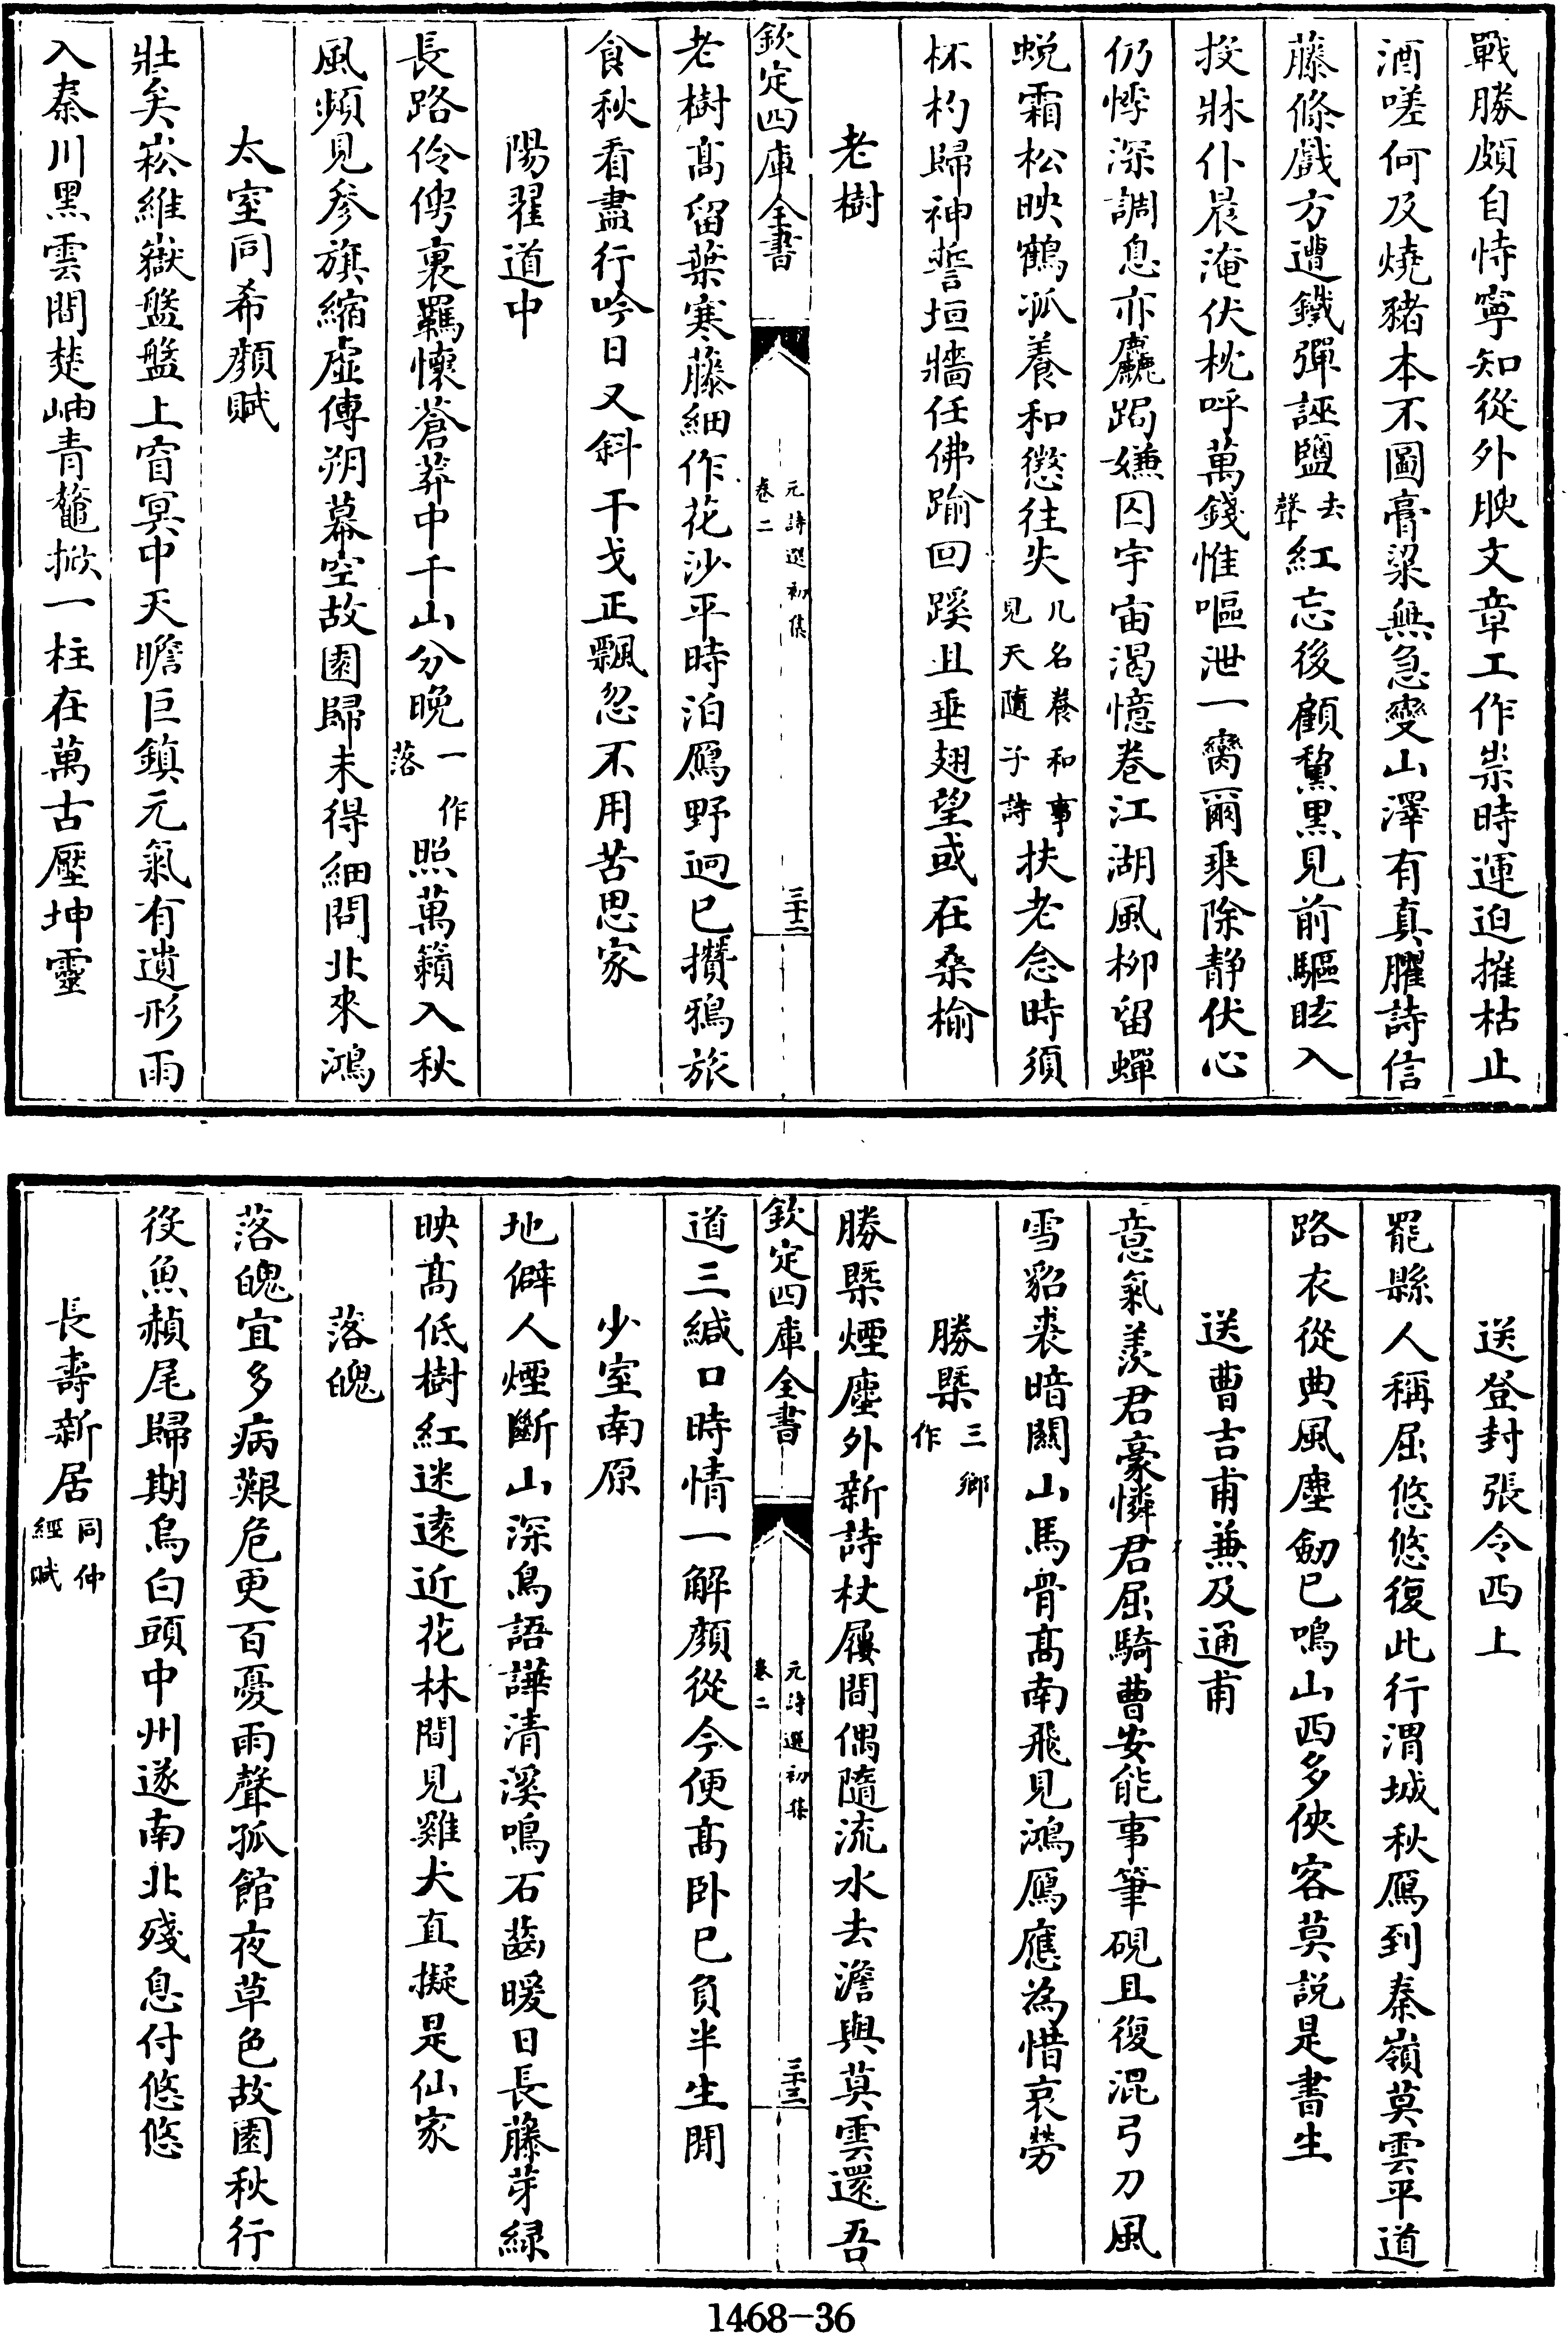 戰勝頗自恃寧知從外腴文章工作祟時運迫摧枯止
酒嗟何及燒豬本不圖膏粱無急變山澤有真臞詩信
藤條戲方遭鐵彈誣鹽去聲紅忘後顧黧黑見前驅眩入
投牀仆晨淹伏枕呼萬錢惟嘔泄一臠爾乘除静伏心
仍悸深調息亦麤跼嫌囚宇宙渴憶卷江湖風柳留蟬
蜕霜松映鶴孤養和懲往失几名養和事見天隨子詩扶老念時須
杯杓歸神誓垣牆任佛踰回蹊且垂翅望或在桑榆
老樹
欽定四庫全書
元詩選初集
卷二
三十二
老樹髙留葉寒藤細作花沙平時泊鴈野逈已攢鴉旅
食秋看盡行吟日又斜干戈正飄忽不用苦思家
陽翟道中
長路伶俜裏羈懷蒼莽中千山分晚一作落照萬籟入秋
風頻見参旗縮虚傳朔幕空故園歸未得細問北來鴻
太室同希顔賦
壯矣崧維嶽盤盤上窅冥中天瞻巨鎮元氣有遺形雨
入秦川黑雲開楚岫青鼇掀一柱在萬古壓坤靈
送登封張令西上
罷縣人稱屈悠悠復此行渭城秋鴈到秦嶺莫雲平道
路衣從典風塵劒已鳴山西多俠客莫説是書生
送曹吉甫兼及通甫
意氣羡君豪憐君屈騎曹安能事筆硯且復混弓刀風
雪貂裘暗關山馬骨髙南飛見鴻鴈應為惜哀勞
勝槩三鄉作
勝槩煙塵外新詩杖屨間偶隨流水去澹與莫雲還吾
欽定四庫全書
元詩選初集
卷二
三十三
道三緘口時情一解顔從今便髙卧已負半生閒
少室南原
地僻人煙斷山深鳥語譁清溪鳴石齒暖日長藤芽緑
映髙低樹紅迷逺近花林間見雞犬直擬是仙家
落魄
落魄宜多病艱危更百憂雨聲孤館夜草色故園秋行
役魚赬尾歸期烏白頭中州遂南北殘息付悠悠
長壽新居同仲經賦
1468-36